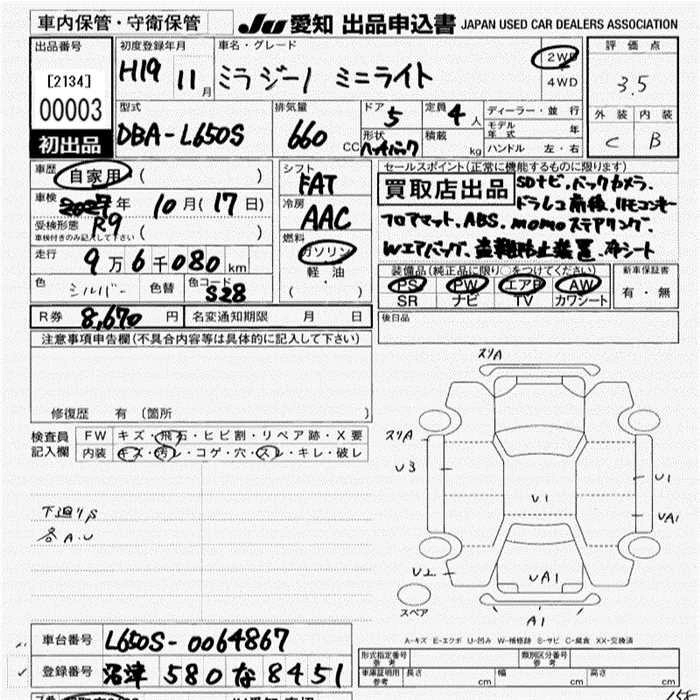 車内保管・守衛保管
JU 愛知 出品申込書 JAPAN USED CAR DEALERS ASSOCIATION
出品番号
[2134]
00003
初出品
初度登録年月
H19 11月
車名・グレード
ミラジーノ ミニライト
2WD
4WD
評価点
3.5
外装 内装
C B
型式
DBA-L650S
排気量
660 CC
ドア 5
形状 ハッチバック
定員 4人
積載 kg
ディーラー・並行
モデル年式 年
ハンドル 左・右
車歴 自家用 ( )
車検 2027年 10月(17日)
R9
受検形態
車検付きのみ記入して下さい ( )
走行 9万6千080km
色 シルバー 色替 色コード S28
シフト
FAT
冷房
AAC
燃料
ガソリン
軽・油
( ・ )
セールスポイント(正常に機能するものに限ります)
買取店出品
SDナビ、バックカメラ、
ドラレコ前後、リモコンキー
フロアマット、ABS、momoステアリング、
Wエアバッグ、盗難防止装置、革シート
装備品(純正品に限り○をつけてください)
PS PW エアB AW
SR ナビ TV カワシート
新車保証書
有・無
R券 8,670円 名変通知期限 月 日
後日品
注意事項申告欄(不具合内容等は具体的に記入して下さい)
修復歴 有 (箇所 )
検査員
記入欄
FW キズ・飛石・ヒビ割・リペア跡・X要
内装 キズ・汚レ・コゲ・穴・スレ・キレ・破レ
下廻りS
各A.U
スリA
スリA
U3
U1
U1
UA1
U2
UA1
A1
スペア
A-キズ E-エクボ U-凹み W-補修跡 S-サビ C-腐食 XX-交換済
車台番号 L650S-0064867
登録番号 沼津 580 な 8451
形式指定番号 参考
類別区分番号 参考
車庫証明用 参考 長さ cm 幅 cm 高さ cm